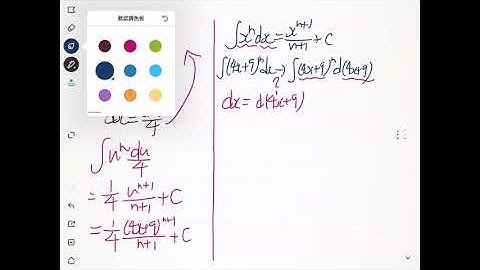 默認調色板
du/4
∫uⁿ du/4
= 1/4 uⁿ⁺¹/n+1 + C
= 1/4 (4x+9)ⁿ⁺¹/n+1 + C
∫xⁿdx = xⁿ⁺¹/n+1 + C
∫(4x+9)ⁿdx → ∫(4x+9)ⁿd(4x+9)
?
dx = d(4x+9)